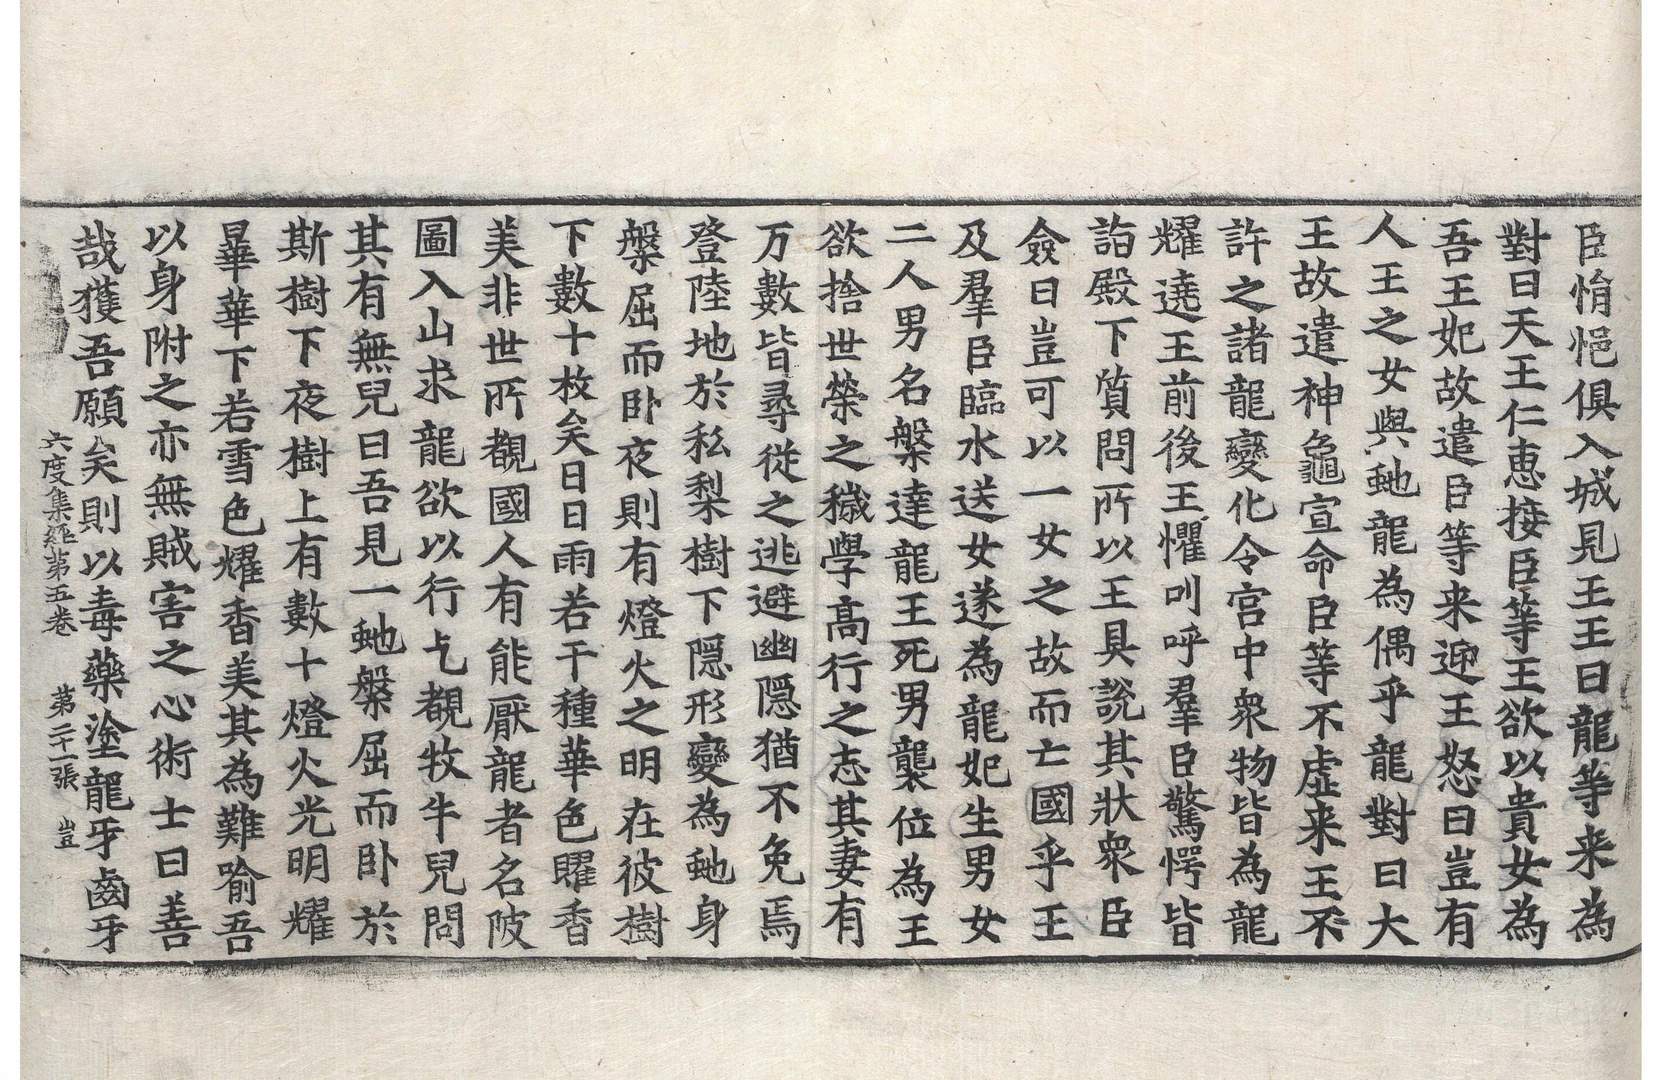 臣悁悒俱入城見王王曰龍等来為
對曰天王仁惠接臣等王欲以貴女為
吾王妃故遣臣等来迎王怒曰豈有
人王之女與虵龍為偶乎龍對曰大
王故遣神龜宣命臣等不虛来王不
許之諸龍變化令宮中衆物皆為龍
耀遶王前後王懼叫呼羣臣驚愕皆
詣殿下質問所以王具說其狀衆臣
僉曰豈可以一女之故而亡國乎王
及羣臣臨水送女遂為龍妃生男女
二人男名槃達龍王死男襲位為王
欲捨世榮之穢學高行之志其妻有
万數皆尋従之逃避幽隱猶不免焉
登陸地於私梨樹下隱形變為虵身
槃屈而卧夜則有燈火之明在彼樹
下數十枚矣日日雨若干種華色曜香
美非世所覩國人有能厭龍者名陂
圖入山求龍欲以行乞覩牧牛兒問
其有無兒曰吾見一虵槃屈而卧於
斯樹下夜樹上有數十燈火光明耀
曅華下若雪色耀香美其為難喻吾
以身附之亦無賊害之心術士曰善
哉獲吾願矣則以毒藥塗龍牙齒牙
六度集經第五卷 第二十一張 豈